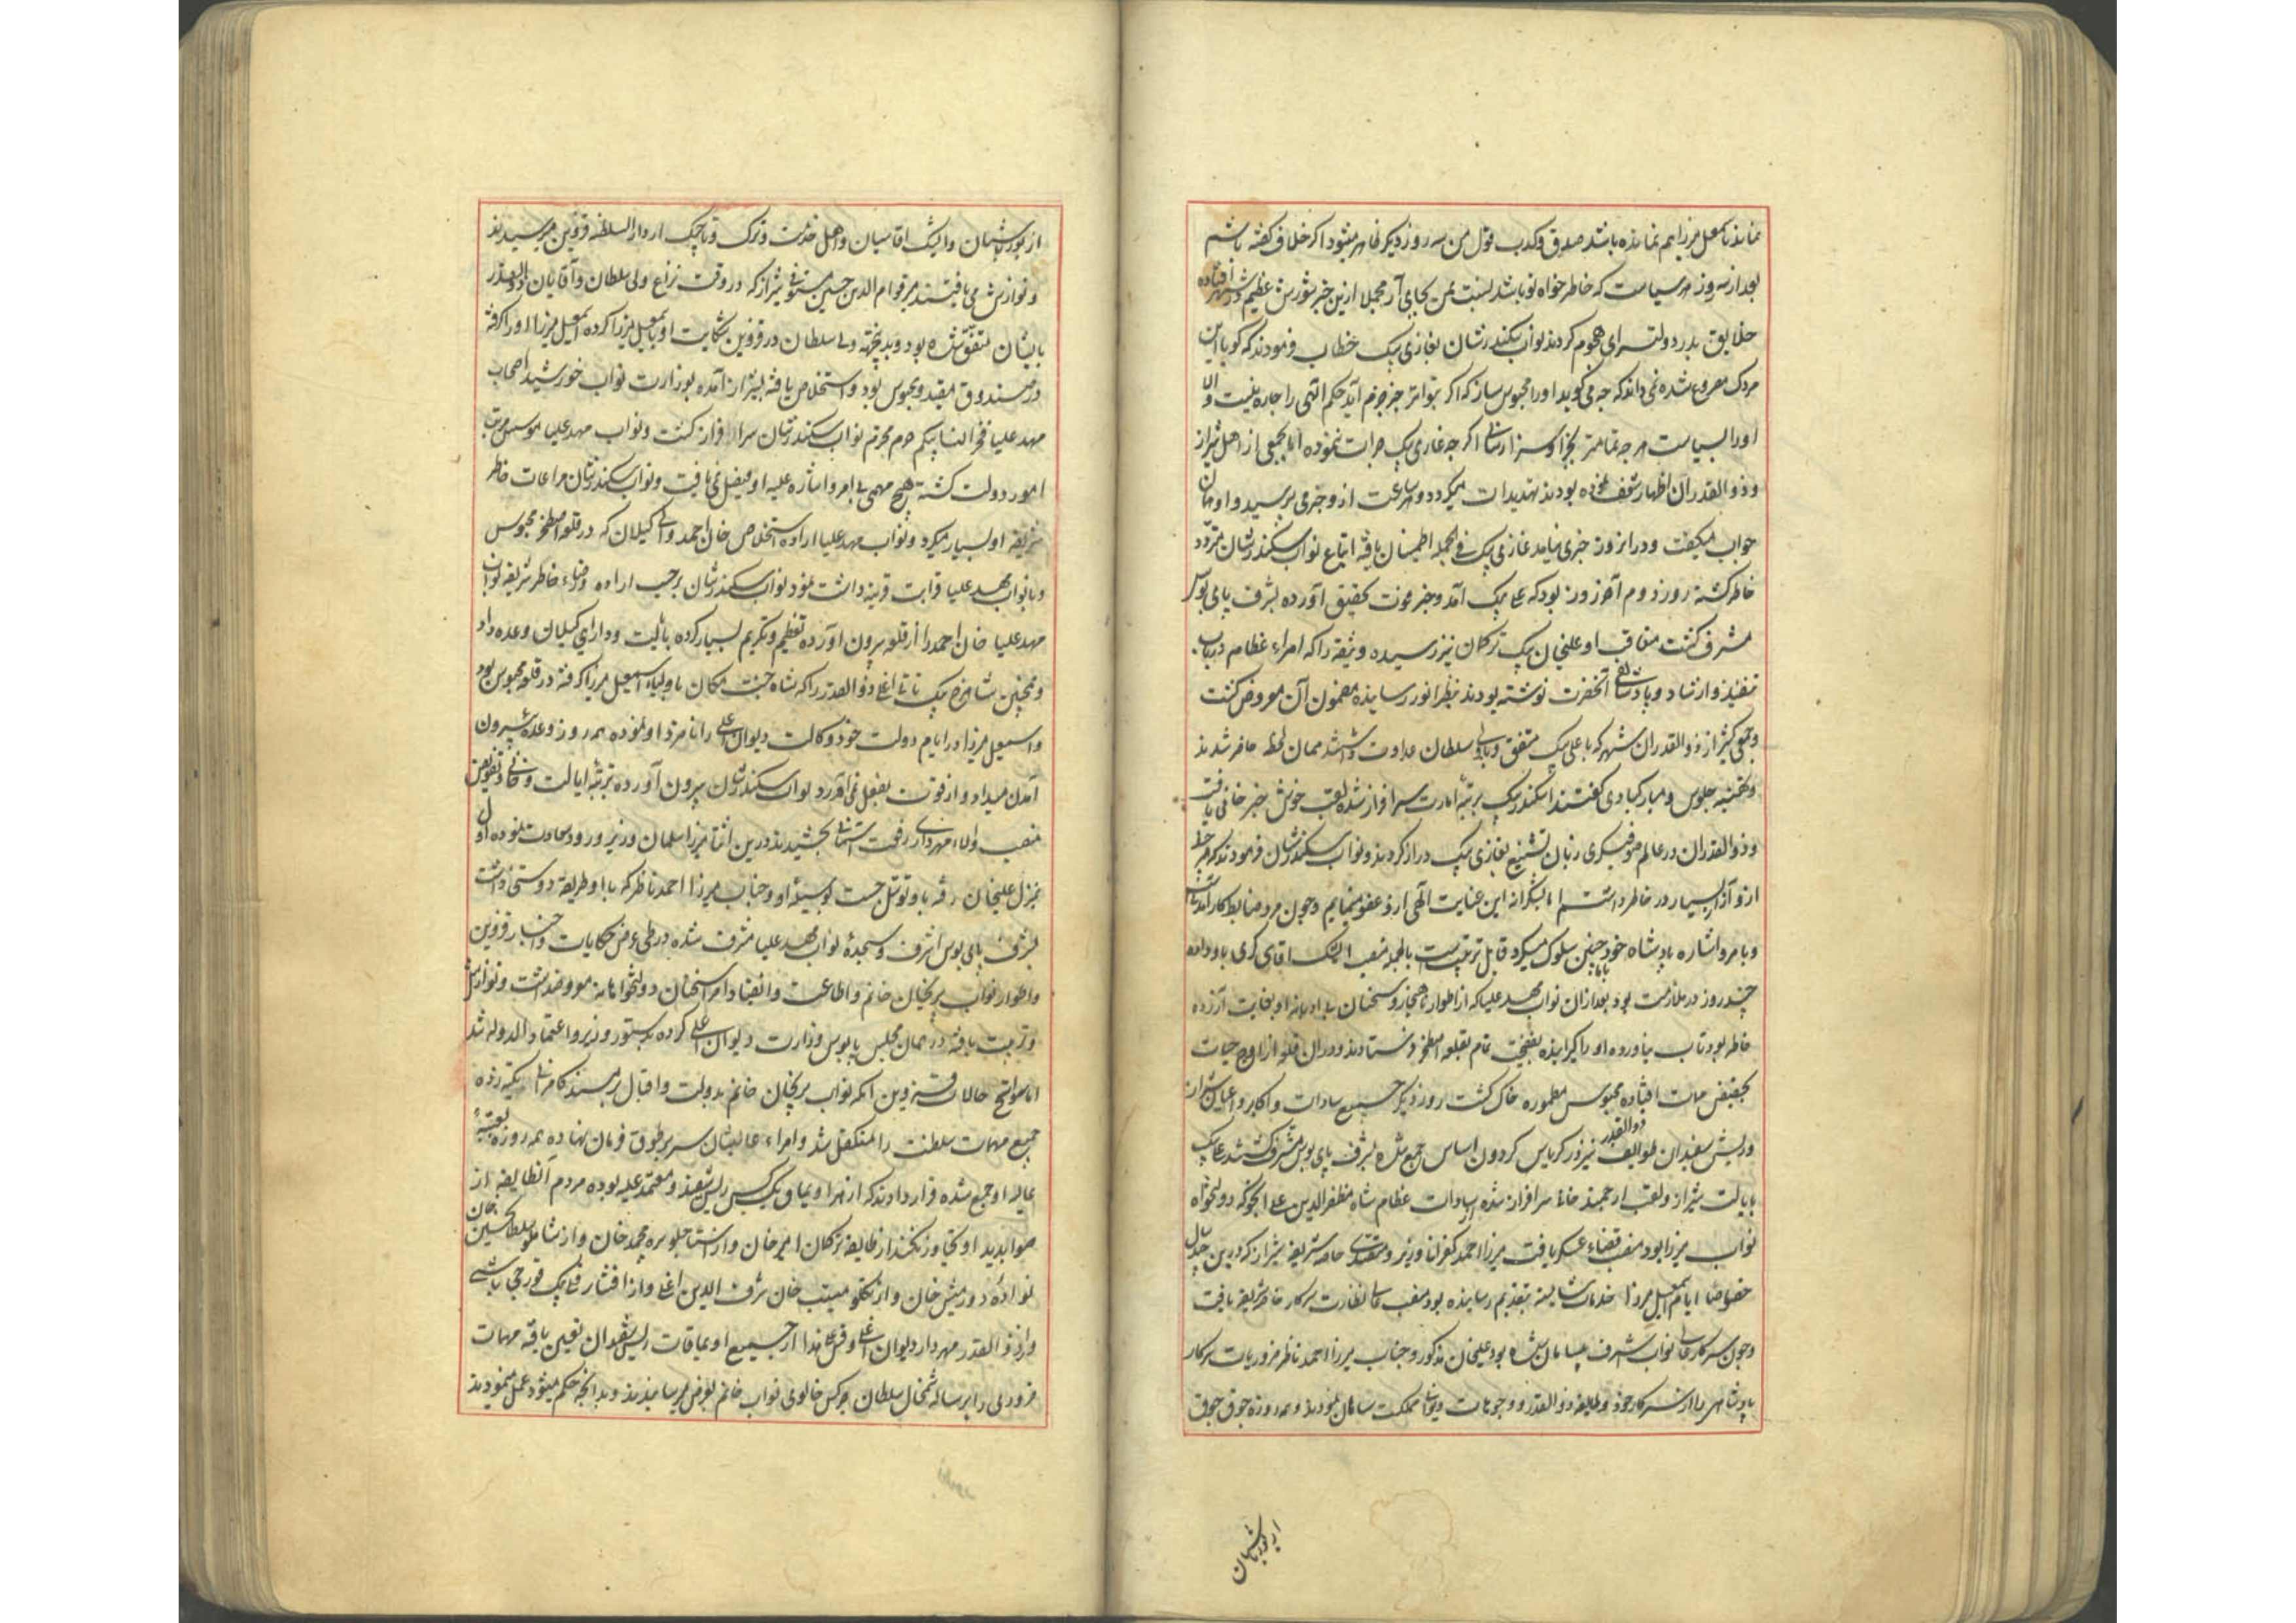 نمانده اسمعیل میرزا هم نمانده باشد صدق و کذب قول من سه روز دیگر ظاهر میشود اگر خلاف گفته باشم
بعد از سه روز هر سیاست که خاطر خواه تو باشد نسبت بمن بجای آر مجملا ازین خبر شورش عظیم در شهر افتاده
خلایق بدر دولتسرای هجوم کردند نواب سکندرشان بغازی بیک خطاب فرمودند که گویا این
مردک مصروع شده نمیداند که چه می گوید او را محبوس ساز که اگر بتواتر خبر جزم آید حکم الهی را چاره نیست والا
او را بسیاست هر چه تمامتر بجزا و سزا رسانی اگر چه غازی بیک جرات ننموده اما بجمعی از اهل شیراز
و ذوالقدران اظهار شعف نموده بودند تهدیدات میکرد و هر ساعت ازو خبر می پرسید و او همان
جواب میگفت و در آنروز خبری نیامد غازی بیک فی الجمله اطمینان یافته اتباع نواب سکندرشان متردد
خاطر گشته روز دوم آخر روز بود که علی بیک آمد و خبر فوت تحقیق آورده بشرف پای بوس
مشرف گشت متعاقب او علیخان بیک ترکمان نیز رسیده وثیقه را که امراء عظام در باب
تنفیذ و ارشاد و پادشاهی آنحضرت نوشته بودند بنظر انور رسانیده مضمون آن معروض گشت
و جمعی کثیر از ذوالقدران شهر که با علی بیک متفق و با ولی سلطان عداوت داشتند همان لحظه حاضر شدند
و تهنیه جلوس و مبارکبادی گفتند اسکندر بیک برتبه امارت سرافراز شده لقب خوش خبر خانی یافت
و ذوالقدران در عالم صوفیگری زبان تشنیع بغازی بیک دراز کردند و نواب سکندرشان فرمودند که هر چند
ازو آزار بسیار در خاطر داشتم اما بشکرانه این عنایت الهی ازو عفو مینمایم و چون مرد ضابط کارآمدنیست
و بامر و اشاره پادشاه خود با ما چنین سلوک میکرد قابل تربیتست بالجمله منصب ایشک اقاسی گری باو داده
چند روز در ملازمت بود بعد از آن نواب مهد علیا که از اطوار ناهنجار و سخنان بی ادبانه او بغایت آزرده
خاطر بود تاب نیاورده او را گیرانیده بفضیحت تمام بقلعه اصطخر فرستادند و در آن قلعه از اوج حیات
بحضیض ممات افتاده محبوس مطموره خاک گشت روز دیگر جمیع سادات و اکابر و اعیان شیراز
و ریش سفیدان طوایف ذوالقدر نیز در کریاس گردون اساس جمع شده بشرف پای بوس مشرف گشتند علی بیک
بایالت شیراز و لقب ارجمند خانی سرافراز شده از سادات عظام شاه مظفرالدین علی انجو که دولتخواه
نواب میرزا بود منصب قضاء عسکر یافت میرزا احمد کفرانی وزیر و متصدی خاصه شریفه شیراز که درین چند سال
خصوصا ایام اسمعیل میرزا خدمات شایسته بتقدیم رسانیده بود منصب عالی نظارت سرکار خاصه شریفه یافت
و چون سرکار عالی نواب اشرف بیسامان شده بود علیخان مذکور و جناب میرزا احمد ناظر ضروریات سرکار
پادشاهی را از سرکار خود و طایفه ذوالقدر و وجوهات دیوانی مملکت سامان نمودند و همه روزه جوق جوق
از یورباشیان
از یورباشیان و ایشک اقاسیان و اهل خدمت و ترک و تاجیک از دارالسلطنه قزوین میرسیدند
و نوازش می یافتند میر قوام الدین حسین مستوفی شیراز که در وقت نزاع ولی سلطان و آقایان ذوالقدر
بایشان متفق شده بود و بدینجهة ولی سلطان در قزوین شکایت او باسمعیل میرزا کرده اسمعیل میرزا او را گرفته
در صندوق مقید و محبوس بود و استخلاص یافته بشیراز آمده بوزارت نواب خورشید احتجاب
مهد علیا فخر النسا بیگم حرم محترم نواب سکندرشان سرافراز گشت و نواب مهد علیا موسس مرتب
امور دولت گشته هیچ مهمی بی امر و اشاره علیه او فیصل نمی یافت و نواب سکندرشان مراعات خاطر
شریفه او بسیار میکرد و نواب مهد علیا اراده استخلاص خان احمد والی گیلان که در قلعه اصطخر محبوس
و با نواب مهد علیا قرابت قریبه داشت نمود نواب سکندرشان بر حسب اراده و رضاء خاطر شریفه نواب
مهد علیا خان احمد را از قلعه بیرون آورده تعظیم و تکریم بسیار کرده بایالت و دارایی گیلان وعده داد
و همچنین شاهرخ بیک تاتی اغلی ذوالقدر را که شاه جنت مکان باولیاء اسمعیل میرزا گرفته در قلعه محبوس بود
و اسمعیل میرزا در ایام دولت خود وکالت دیوان اعلی را نامزد او نموده همه روز وعده بیرون
آمدن میداد و از قوت بفعل نمی آورد نواب سکندرشان بیرون آورده برتبه ایالت و خانی و تفویض
منصب والاء مهرداری رفعت اشتهای بخشیدند درین اثنا میرزا سلمان وزیر ورود سعادت نموده اول
بمنزل علیخان رفته باو توسل جست بوسیله او و جناب میرزا احمد ناظر که با او طریقه دوستی داشت
بشرف پای بوس اشرف و سجده نواب مهد علیا مشرف شده در طی عرض حکایات و اخبار قزوین
و اطوار نواب پریخان خانم و اطاعت و انقیاد امرا سخنان دولتخواهانه معروض داشت و نوازش
و تربیت یافته در همان مجلس پابوس وزارت دیوان اعلی کرده بدستور وزیر و اعتماد الدوله شد
اما سوانح حالات قزوین آنکه نواب پریخان خانم بدولت و اقبال بر مسند کامرانی تکیه زده
جمیع مهمات سلطنت را متکفل شد و امراء عالیشان سر بر طوق فرمان نهاده همه روزه بعتبه
عالیه او جمع شده قرار دادند که از هر اویماق یک کس ریش سفید و معتمد علیه بوده مردم آنطایفه از
صوابدید او تجاوز نکنند از طایفه ترکمان امیر خان و از استاجلو پیره محمد خان و از شاملو سلطان حسین خان
نواده دورمیش خان و از تکلو مسیب خان شرف الدین اغلی و از افشار قلی بیک قورچی باشی
و از ذوالقدر مهردار دیوان اعلی و قس علی هذا از جمیع اویماقات ریش سفیدان تعیین یافته مهمات
ضروری را برسالت شمخال سلطان چرکس خالوی نواب خانم بعرض میرسانیدند و بدانچه حکم میشود عمل مینمودند